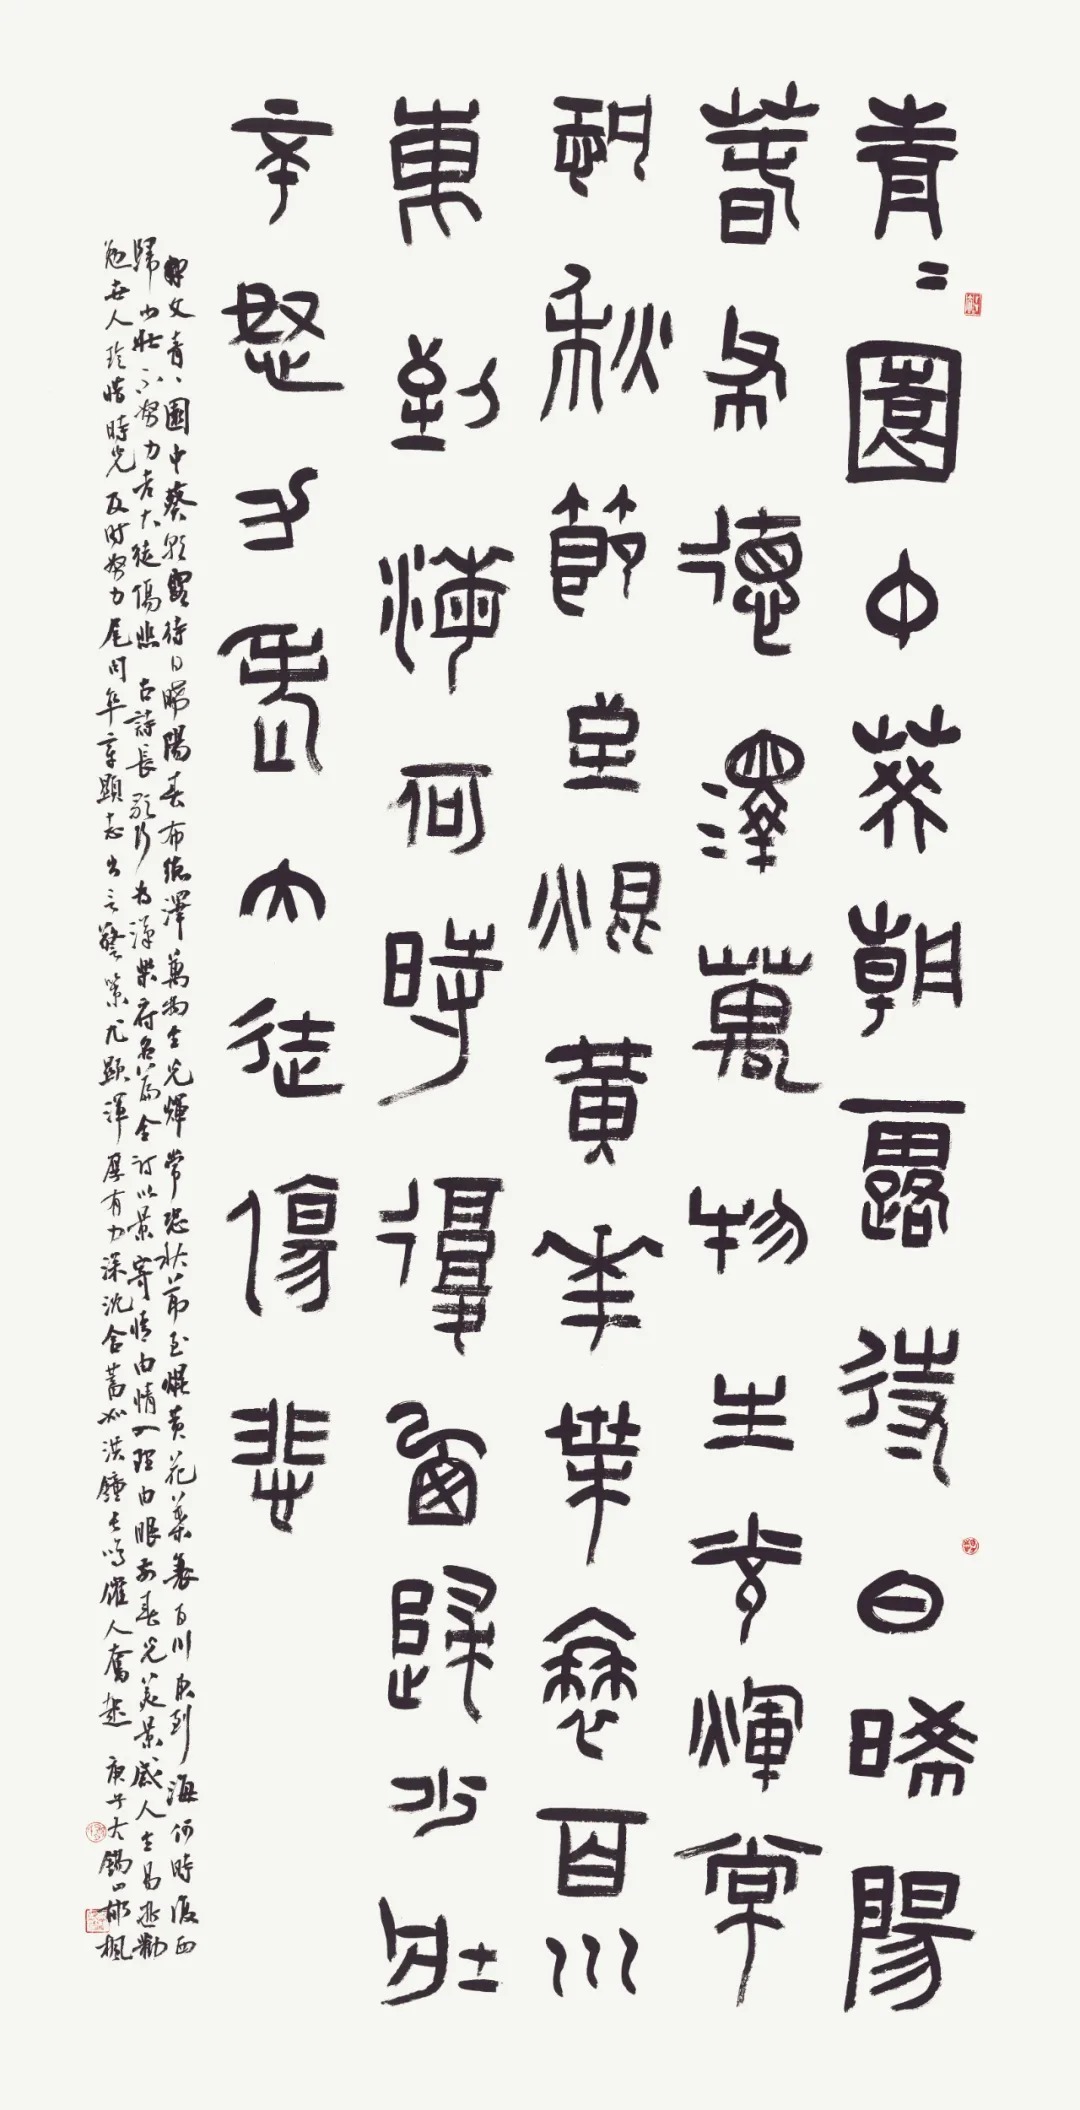 青〻園中葵朝露待日晞陽
春布德澤萬物生光輝常
恐秋節至焜黃華葉衰百川
東到海何時復西歸少壯
不努力老大徒傷悲
釋文青〻園中葵朝露待日晞陽春布德澤萬物生光輝常恐秋節至焜黃花葉衰百川東到海何時復西
歸少壯不努力老大徒傷悲 古詩長歌行為漢樂府名篇全詩以景寄情由情入理由眼前春光美景感人生易逝勸
勉世人珍惜時光及時努力尾卒章顯志出言警策尤顯渾厚有力深沈含蓄如洪鐘長鳴催人奮起 庚子大錫山彬楓